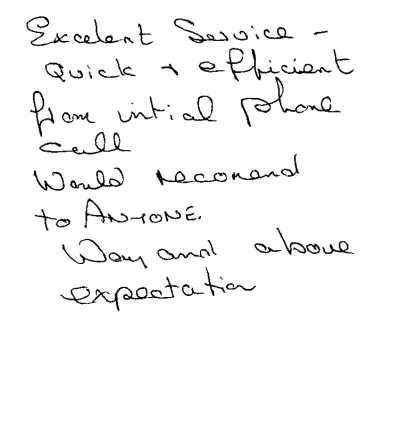 Excelent Service -
Quick + efficient
from intial phone
call
Would recomend
to ANYONE.
Way and above
expectation